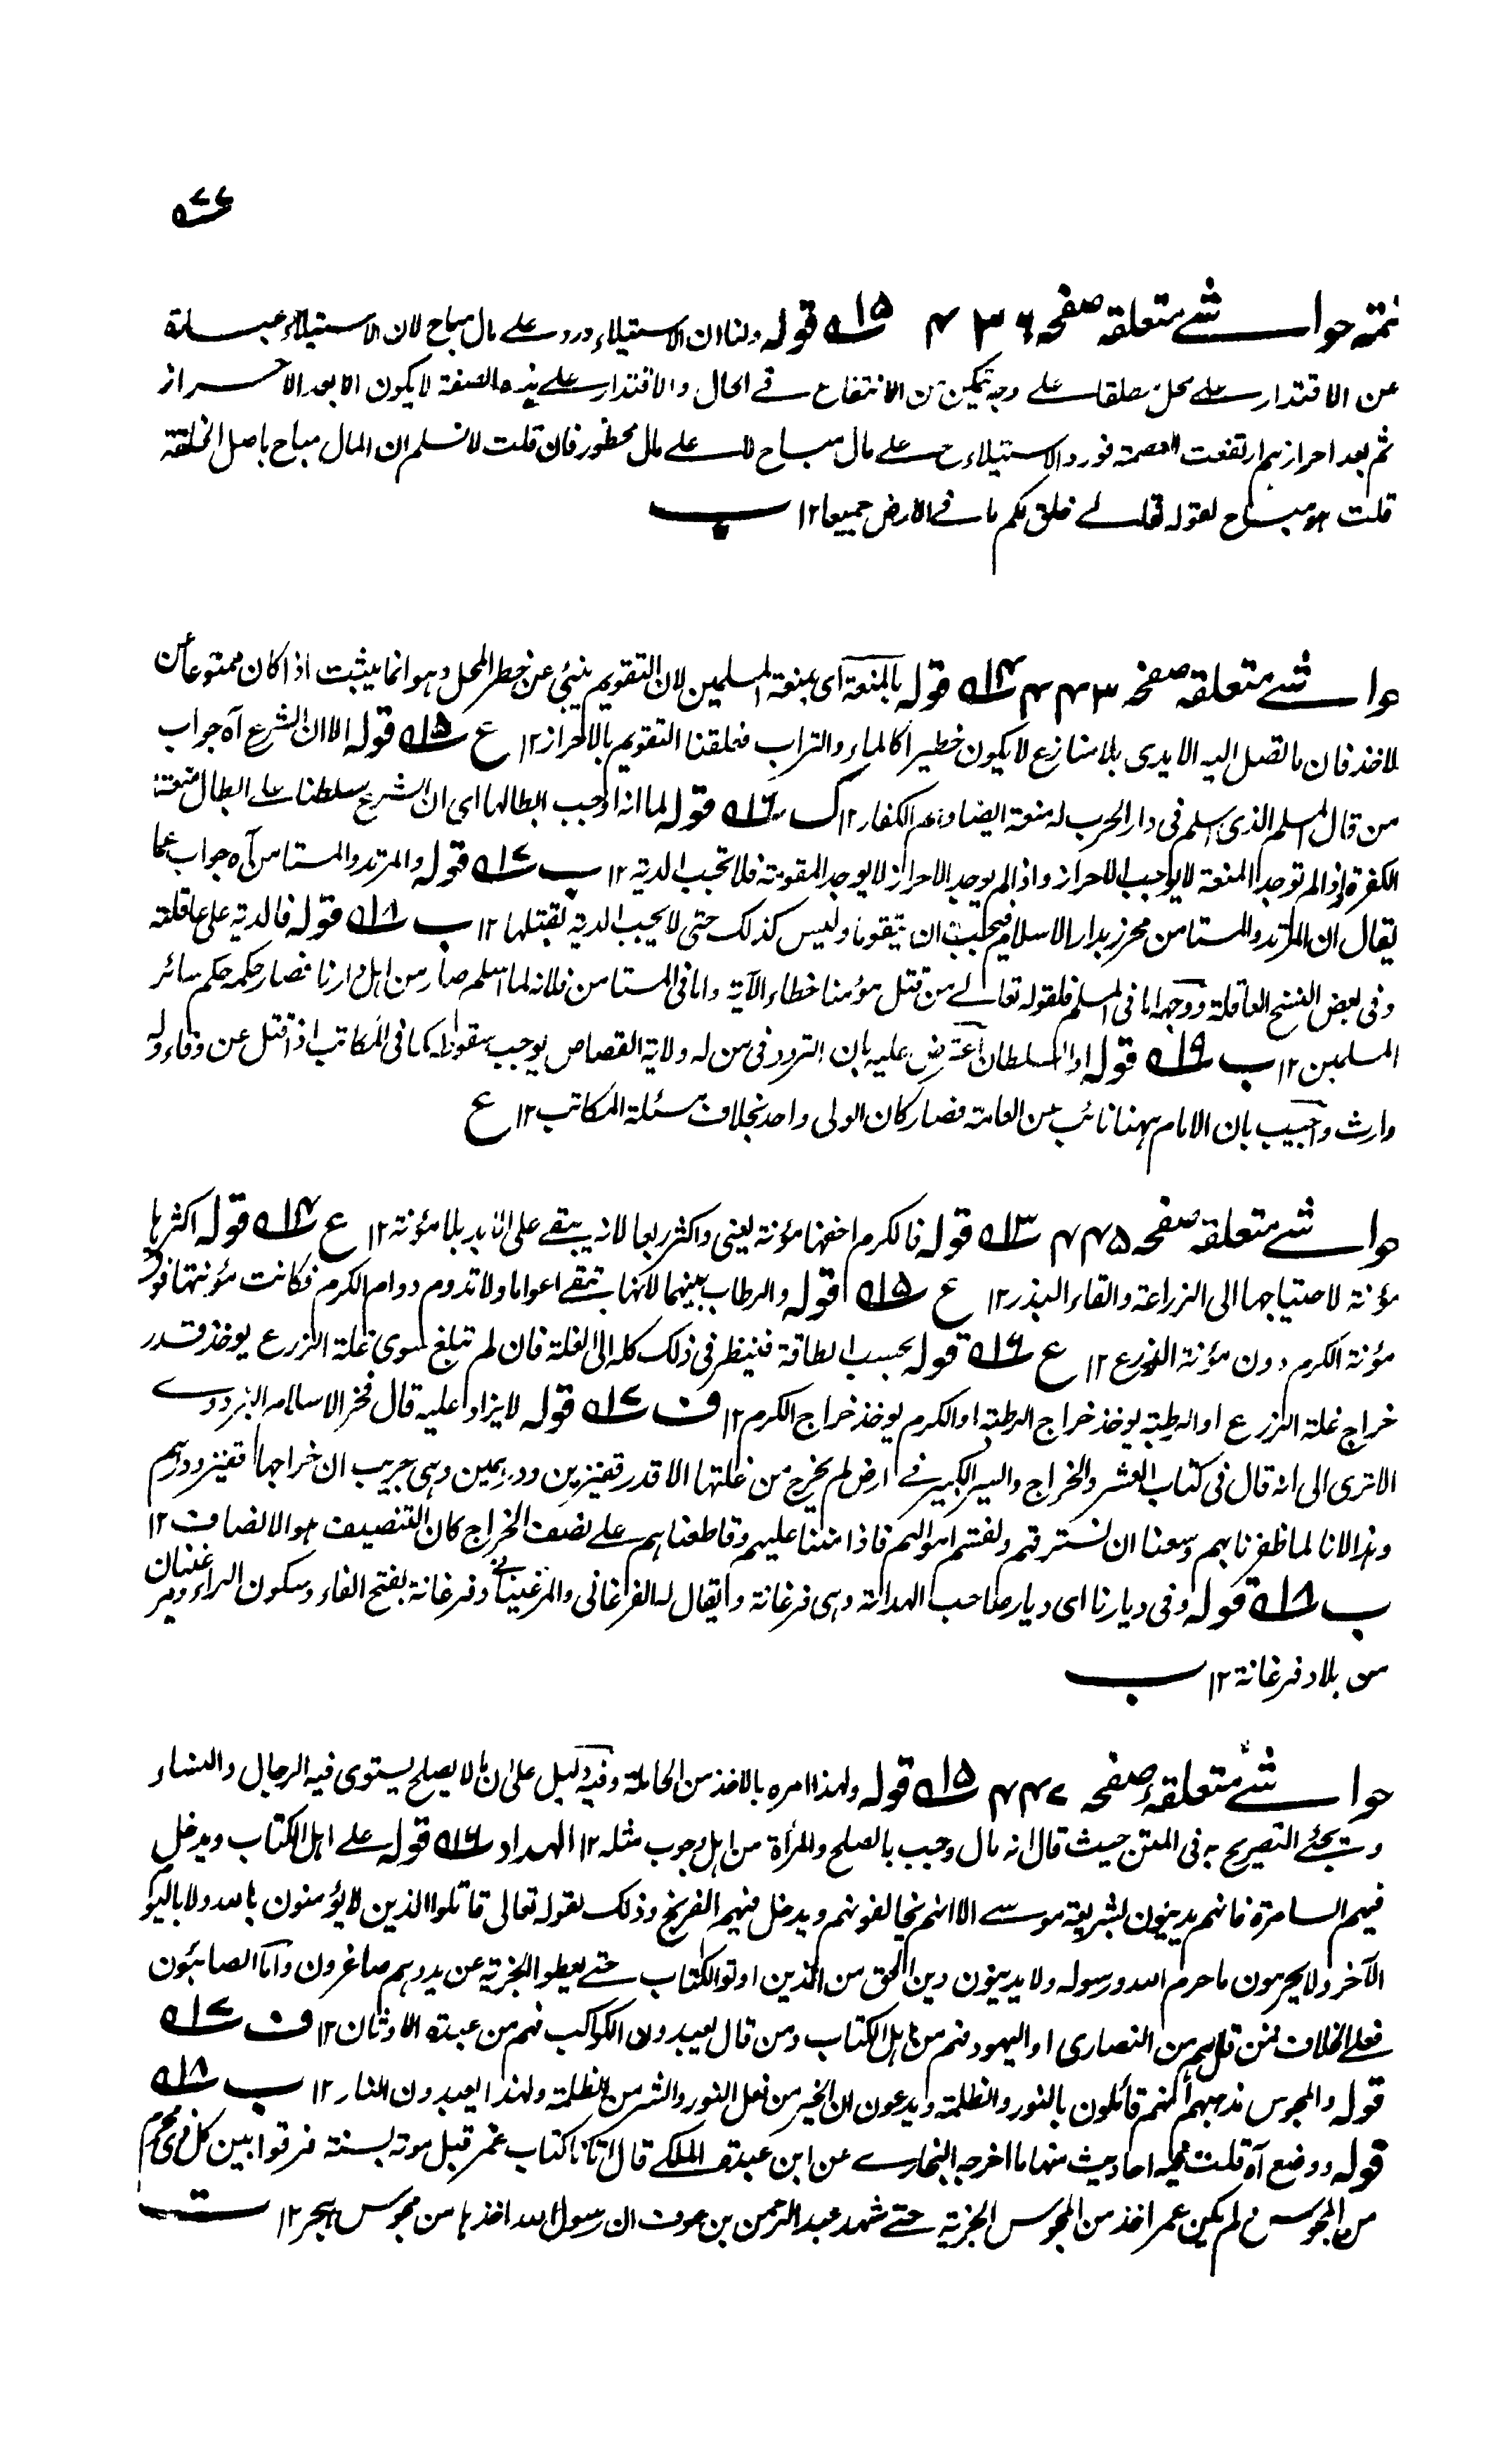 ٥٧٧
تتمة حواشے متعلقه صفحه ٤٣٦ ١٥ قوله ولنا ان الاستيلاء ورد علے مال مباح لان الاستيلاء عبارة
عن الاقتدار علے محل مطلقا علے وجه يتمكن من الانتفاع فے الحال والاقتدار علے هذه الصفة لا يكون الا بعد الاحراز
ثم بعد احرازهم ارتفعت العصمة فورد الاستيلاء ح علے مال مباح لا علے مال محظور فان قلت لا نسلم ان المال مباح باصل الخلقة
قلت هو مباح لقوله تعالے خلق لكم ما فے الارض جميعا ١٢ ب
حواشے متعلقه صفحه ٤٤٣ ١٤ قوله بالمنعة اى بمنعة المسلمين لان التقويم ينبئ عن خطر المحل وهو انما يثبت اذا كان ممنوعا عن
الاخذ فان ما تصل اليه الايدى بلا منازع لا يكون خطيرا كالماء والتراب فعلقنا التقويم بالاحراز ١٢ ع ١٥ قوله الا ان الشرع آه جواب
من قال المسلم الذى اسلم فى دار الحرب له منعة ايضا وهم الكفار ١٢ ك ١٦ قوله لما انه اوجب ابطالها اى ان الشرع سلطنا على ابطال منعة
الكفرة واذا لم توجد المنعة لا يوجب الاحراز واذا لم يوجد الاحراز لا يوجد المقومة فلا تجب الدية ١٢ ب ١٧ قوله والمرتد والمستامن آه جواب عما
يقال ان المرتد والمستامن محرز بدار الاسلام فيجب ان يتقوما وليس كذلك حتى لا يجب الدية بقتلهما ١٢ ب ١٨ قوله فالدية على عاقلته
وفى بعض النسخ العاقلة ووجهه اما فى المسلم فلقوله تعالے من قتل مؤمنا خطاء الآية واما فى المستامن فلانه لما اسلم صار من اهل دارنا فصار حكمه حكم سائر
المسلمين ١٢ ب ١٩ قوله او السلطان اعترض عليه بان التردد فى من له ولاية القصاص يوجب سقوطه كما فى المكاتب اذا قتل عن وفاء وله
وارث واجيب بان الامام ههنا نائب عن العامة فصار كان الولى واحد بخلاف مسئلة المكاتب ١٢ ع
حواشے متعلقه صفحه ٤٤٥ ١٣ قوله فالكرم اخفها مؤنة يعنى واكثر ريعا لانه يبقے على الابد بلا مؤنة ١٢ ع ١٤ قوله اكثرها
مؤنة لاحتياجها الى الزراعة والقاء البذر ١٢ ع ١٥ قوله والرطاب بينهما لانها تبقے اعواما ولا تدوم دوام الكرم فكانت مؤنتها فوق
مؤنة الكرم دون مؤنة الزرع ١٢ ع ١٦ قوله بحسب الطاقة فينظر فى ذلك كله الى الغلة فان لم تبلغ سوى غلة الزرع يوخذ قدر
خراج غلة الزرع او الرطبة يوخذ خراج الرطبة او الكرم يوخذ خراج الكرم ١٢ ف ١٧ قوله لا يزاد عليه قال فخر الاسلام البزدوے
الا ترى الى انه قال فى كتاب العشر والخراج والسير الكبير فے ارض لم يخرج من غلتها الا قدر قفيزين ودرهمين وهى جريب ان خراجها قفيز ودرهم
وهذا لانا لما ظفرنا بهم وسعنا ان نسترقهم ونقسم اموالهم فاذا مننا عليهم وقاطعناهم على نصف الخراج كان التنصيف هو الانصاف ١٢
ب ١٨ قوله وفى ديارنا اى ديار صاحب الهداية وهى فرغانة ويقال له الفرغانى والمرغينانى وفرغانة بفتح الفاء وسكون الراء ومرغينان
من بلاد فرغانة ١٢ ب
حواشے متعلقه صفحه ٤٤٧ ١٥ قوله ولهذا امره بالاخذ من الحاملة وفيه دليل على ان ما لا يصلح يستوى فيه الرجال والنساء
وسيجئ التصريح به فى المتن حيث قال انه مال وجب بالصلح والمرأة من اهل وجوب مثله ١٢ الهداد ١٦ قوله علے اهل الكتاب ويدخل
فيهم السامرة فانهم يدينون بشريعة موسے الا انهم يخالفونهم ويدخل فيهم الفرنج وذلك بقوله تعالى قاتلوا الذين لا يؤمنون بالله ولا باليوم
الآخر ولا يحرمون ما حرم الله ورسوله ولا يدينون دين الحق من الذين اوتوا الكتاب حتے يعطوا الجزية عن يد وهم صاغرون واما الصابئون
فعلے الخلاف فمن قال هم من النصارى او اليهود فهم من اهل الكتاب ومن قال يعبدون الكواكب فهم من عبدة الاوثان ١٢ ف ١٧
قوله والمجوس مذهبهم انهم قائلون بالنور والظلمة ويدعون ان الخير من فعل النور والشر من الظلمة ولهذا يعبدون النار ١٢ ب ١٨
قوله ووضع آه قلت فيه احاديث منها ما اخرجه البخارے عن ابن عبدة الملكے قال اتانا كتاب عمر قبل موته بسنة فرقوا بين كل ذى محرم
من المجوس ولم يكن عمر اخذ من المجوس الجزية حتے شهد عبد الرحمن بن عوف ان رسول الله اخذها من مجوس هجر ١٢ ت